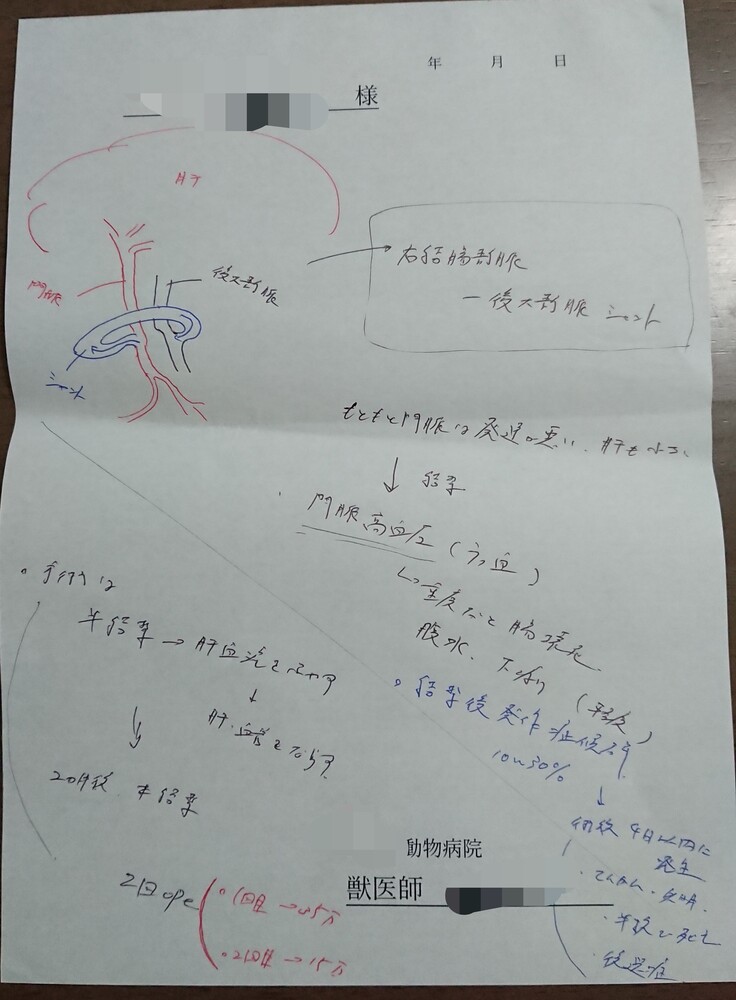 年 月 日
様
肝
門脈
後大静脈
シャント
右結腸静脈
ー後大静脈 シャント
もともと門脈は発達が悪い、肝も小さい
↓ 結紮
門脈高血圧 (うっ血)
↳重度だと腸壊死
腹水、下痢 (軽度)
・手術は
半結紮 → 肝血流を増やす
↓
肝 血管を
2カ月後 本結紮
・結紮後発作症候群
10〜30%
↓
術後 4日以内に
発生
・てんかん・失明
・半数で死亡
・後遺症
動物病院
獣医師
2回ope
・1回目 → 35万
・2回目 → 15万